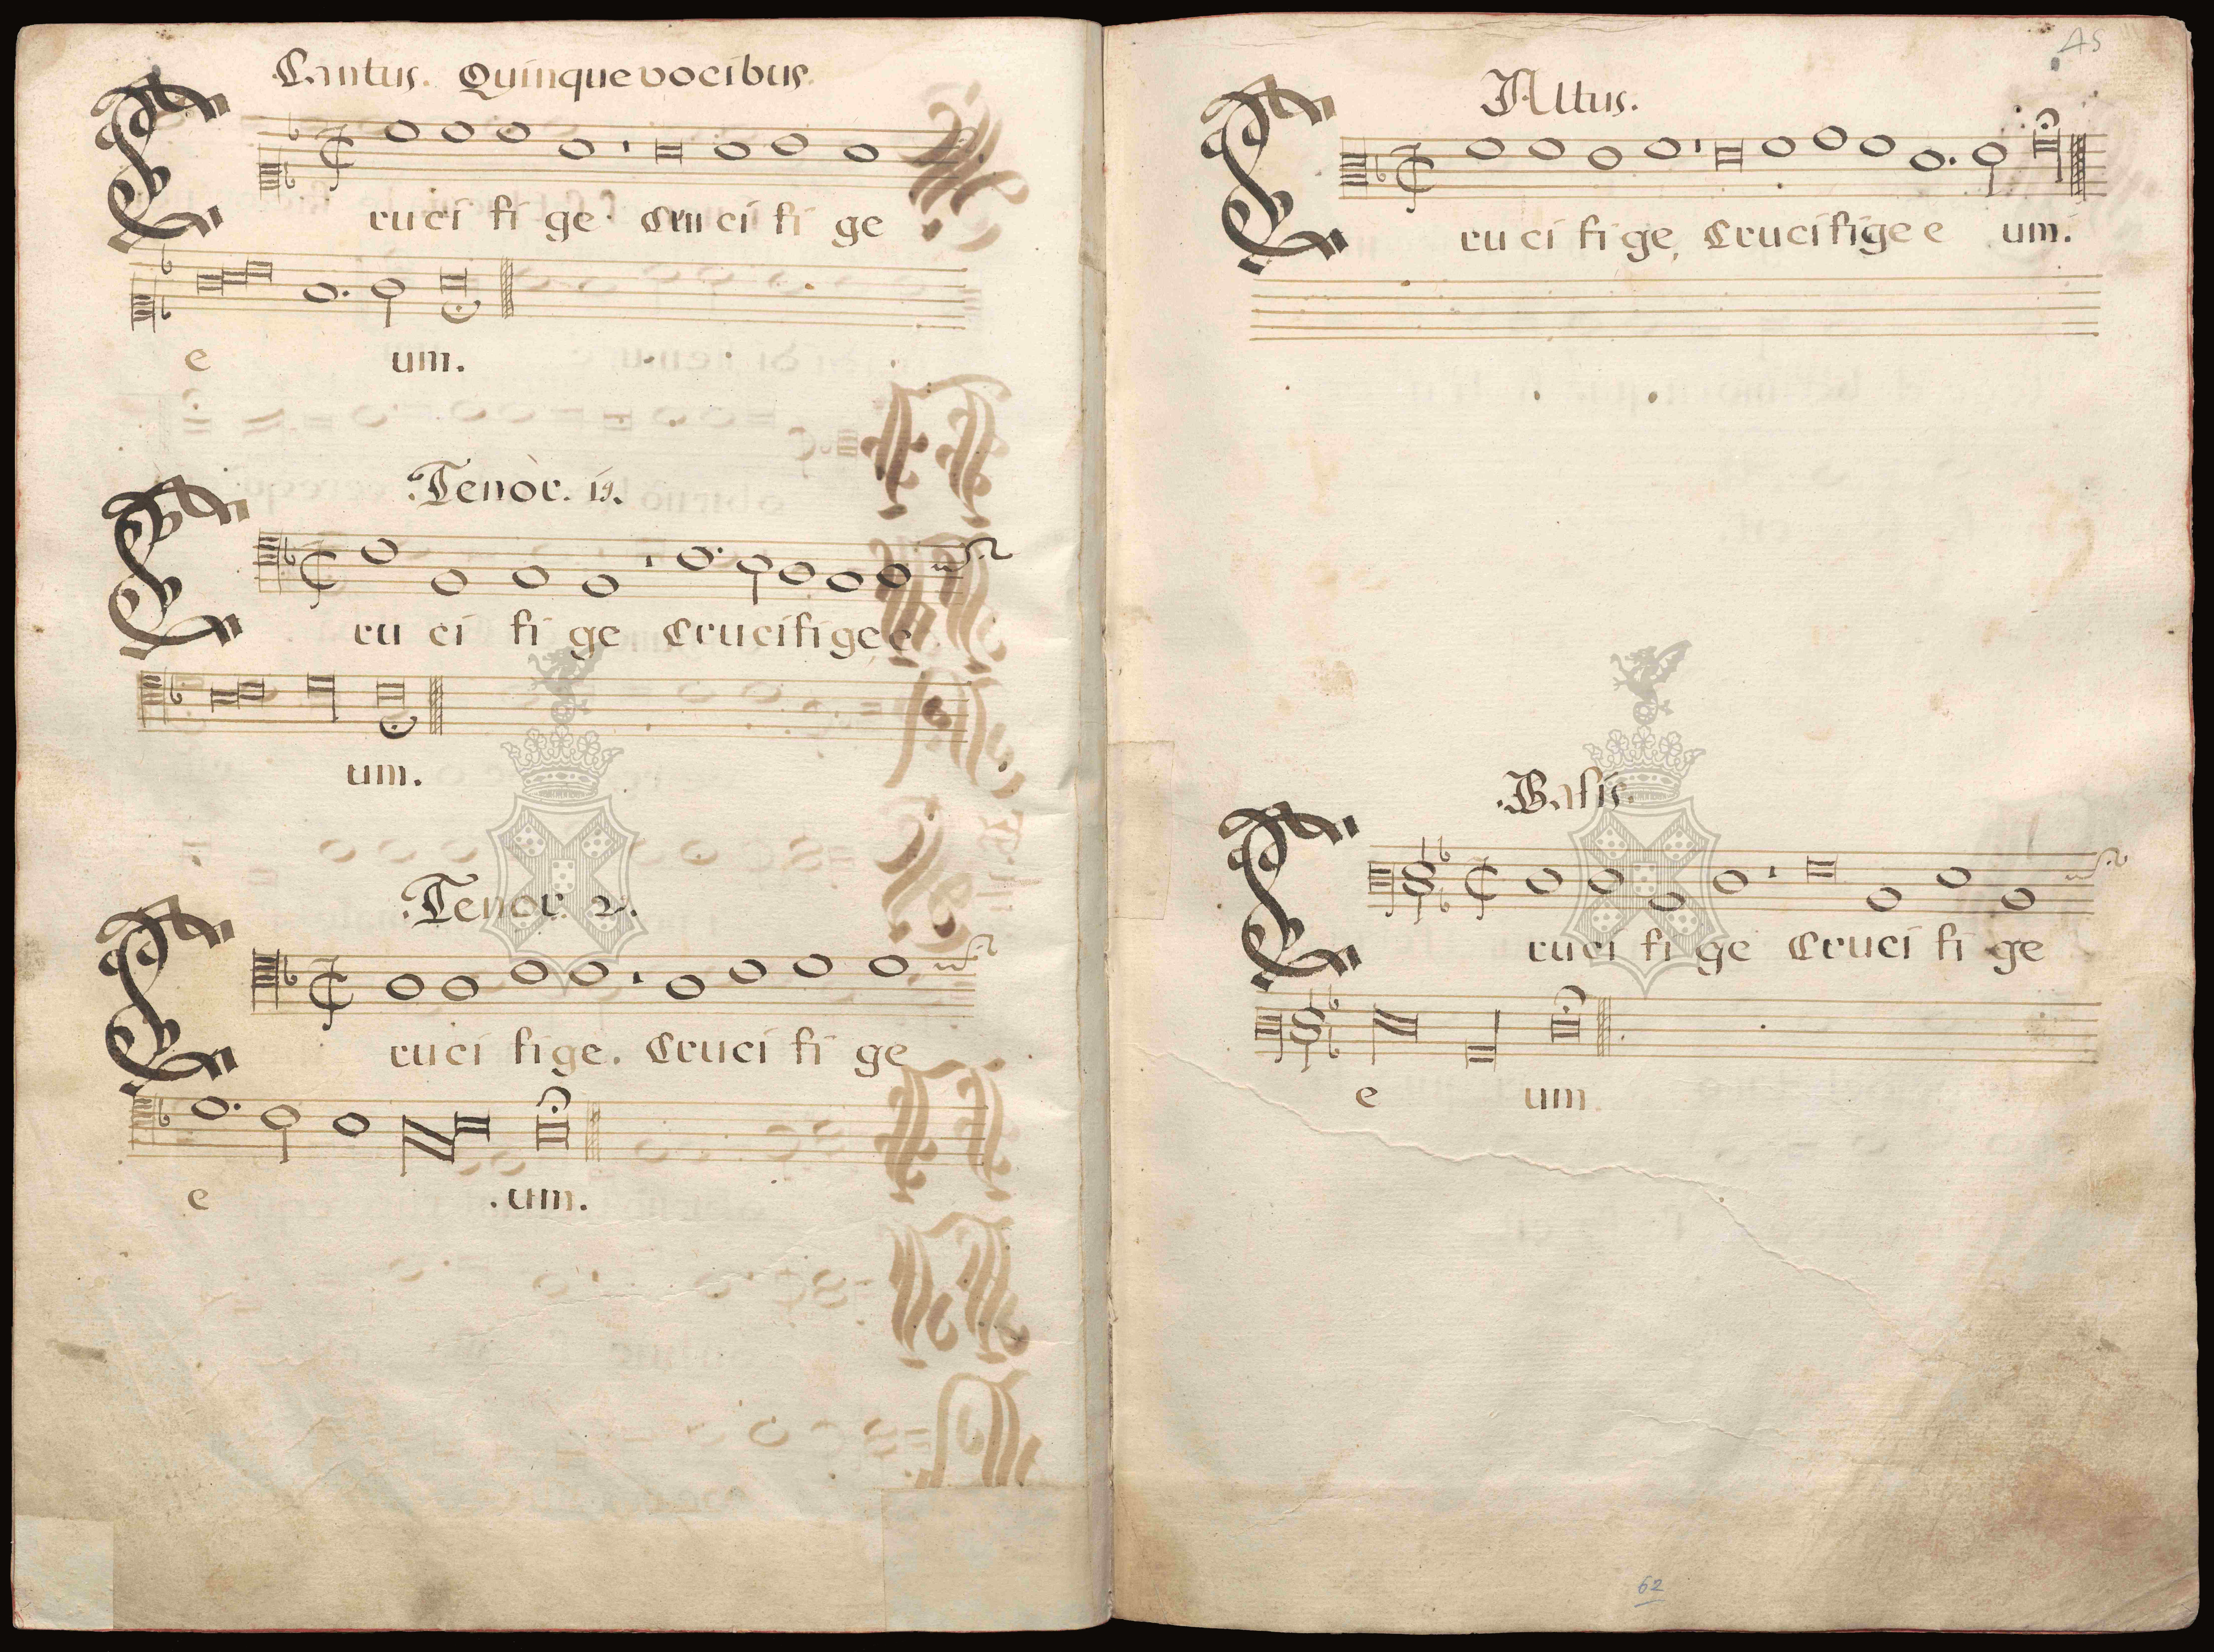 Cantus. Quinque vocibus
Cru ci fi ge. Cru ci fi ge
e um.
Tenor. 1s.
Cru ci fi ge Crucifige e
um.
Tenor 2.
Cruci fige. Cruci fi ge
e .um.
A5
Altus.
Cru ci fi ge, Crucifige e um.
.Basis.
Cruci fi ge Cruci fi ge
e um.
62